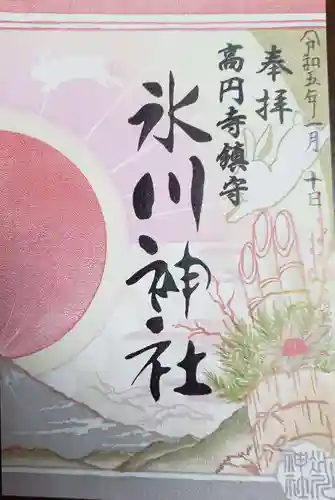 令和五年一月十日
奉拝
高円寺鎮守
氷川神社